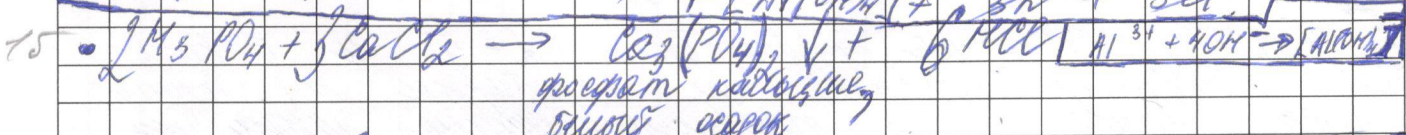 15 • 2H3PO4 + 3CaCl2 → Ca3(PO4)2↓ + 6HCl Al3+ + 4OH- → [Al(OH)4]
фосфат кальция,
белый осадок